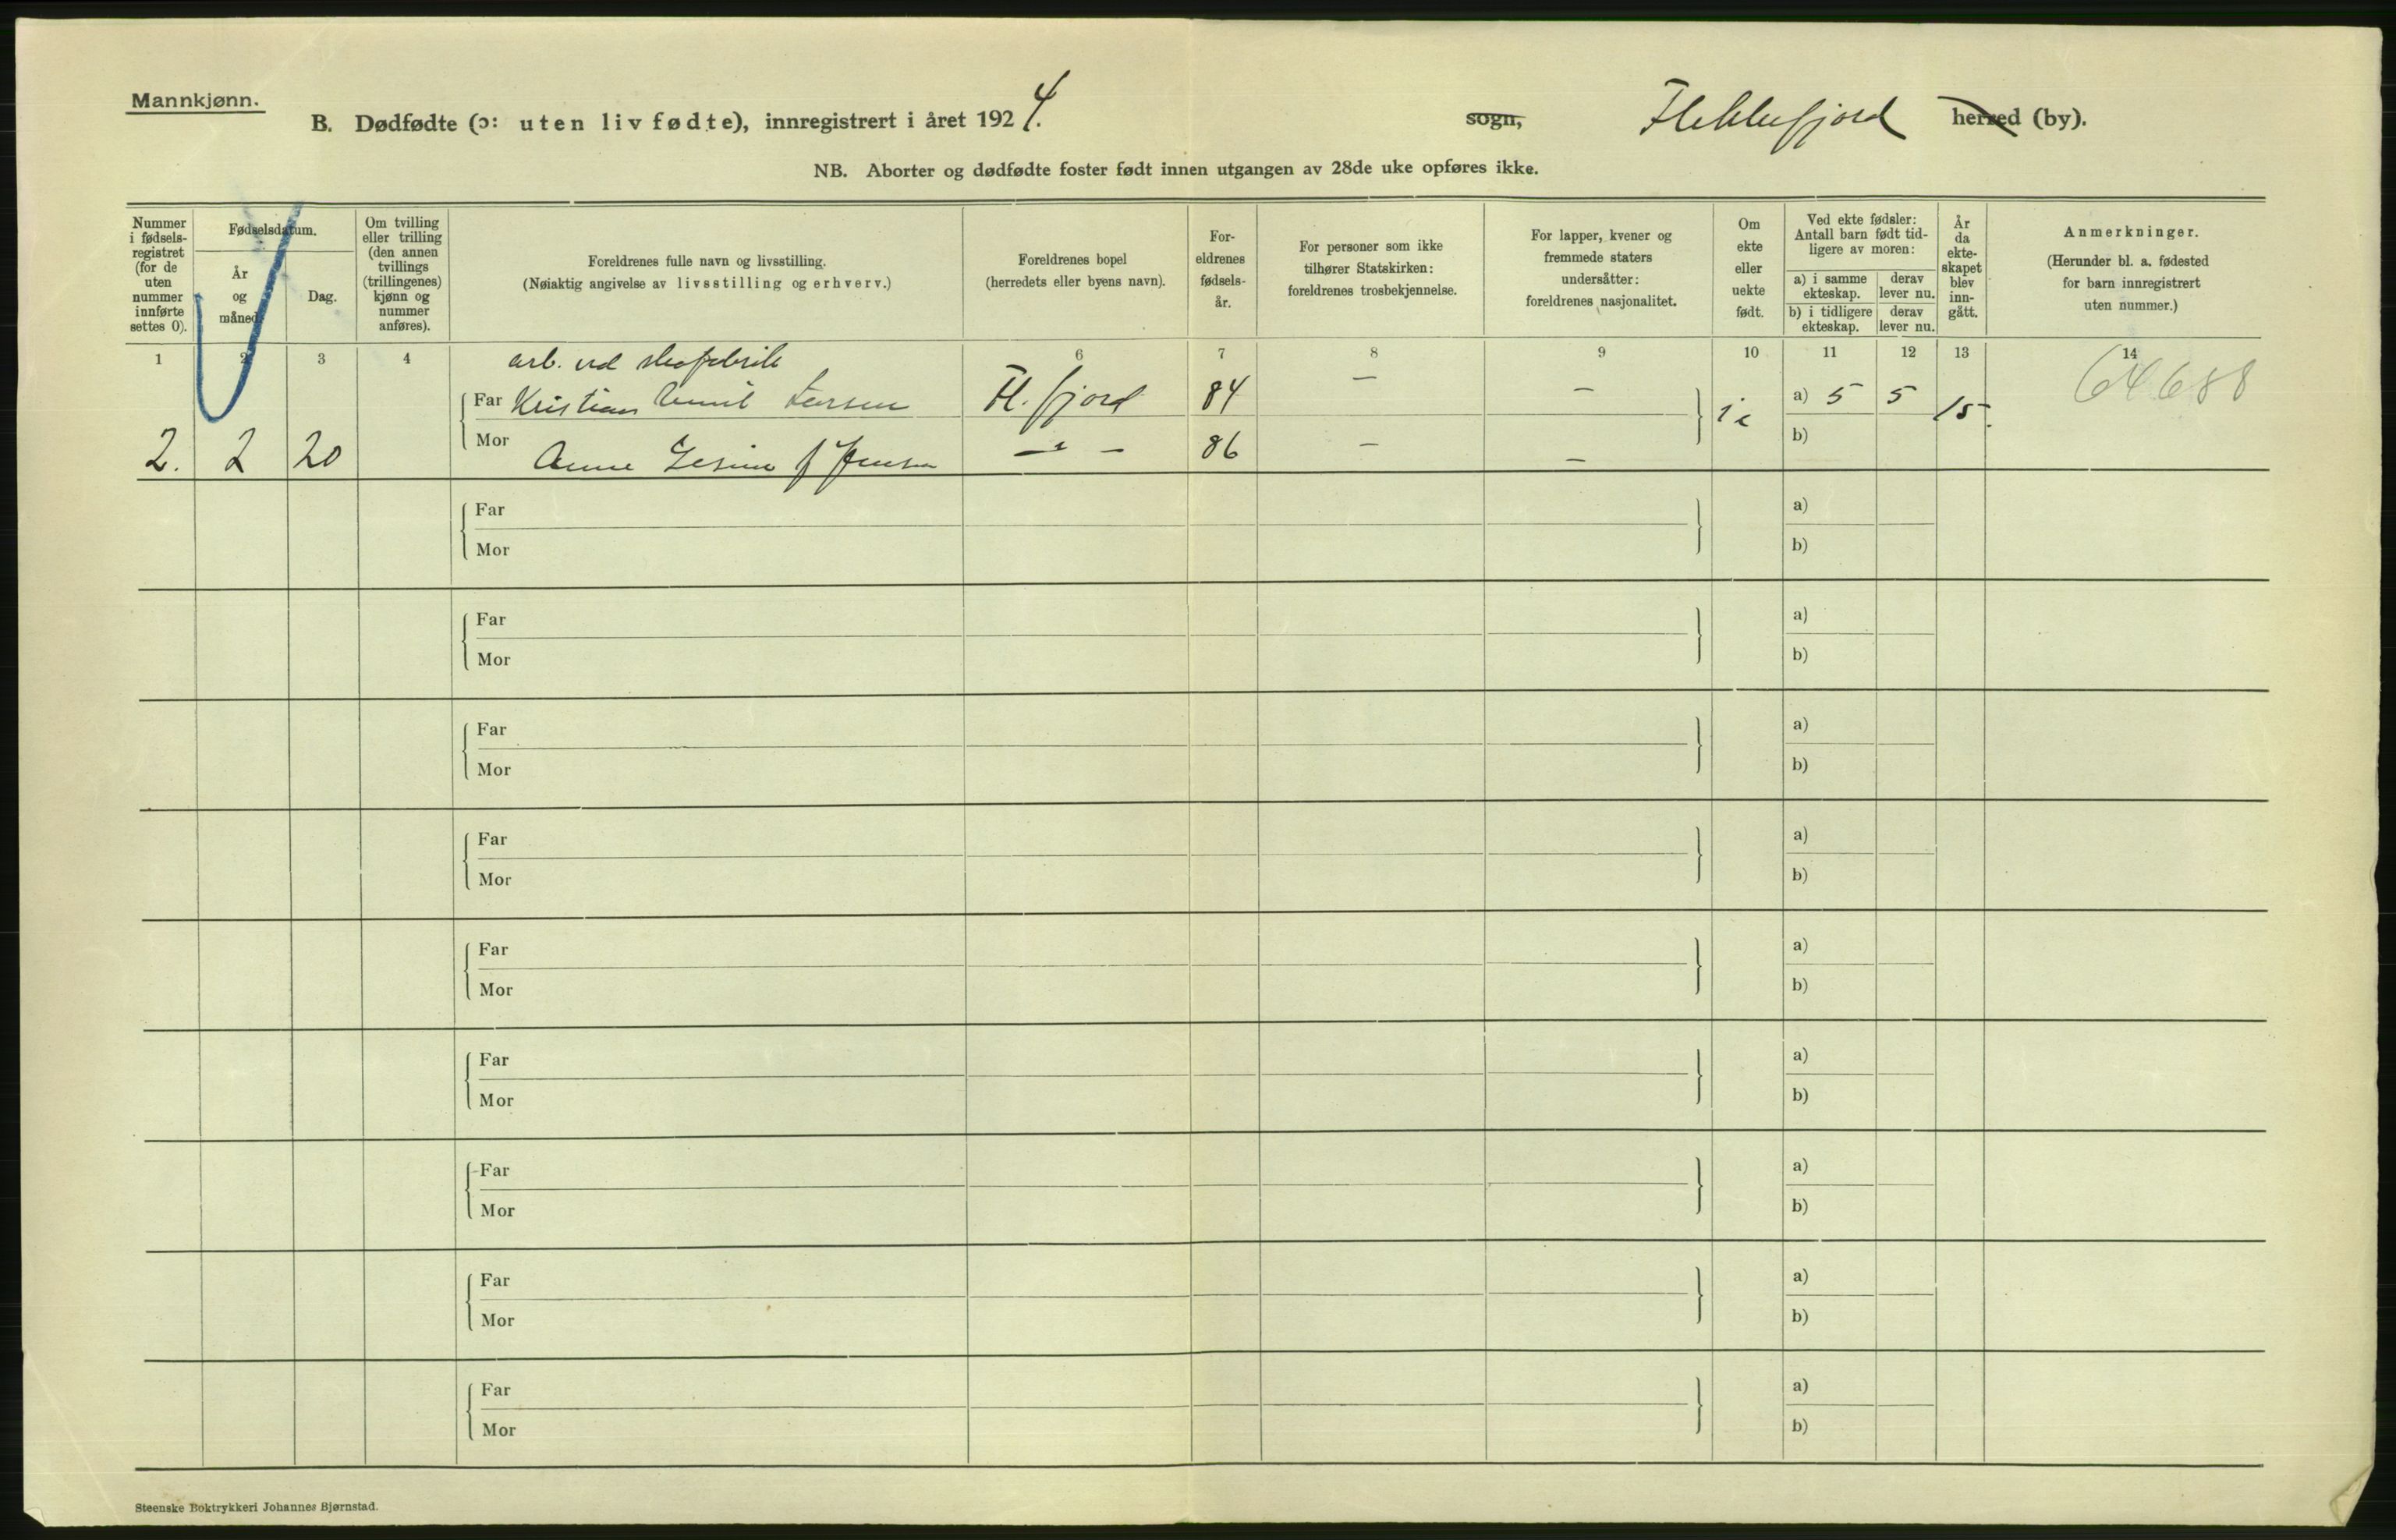 Mannkjønn.
B. Dødfødte (ɔ: uten liv fødte), innregistrert i året 1924. sogn, Flekkefjord herred (by).
NB. Aborter og dødfødte foster født innen utgangen av 28de uke opføres ikke.
Nummer i fødsels-registret (for de uten nummer innførte settes 0).
Fødselsdatum.
År og måned.
Dag.
Om tvilling eller trilling (den annen tvillings (trillingenes) kjønn og nummer anføres).
Foreldrenes fulle navn og livsstilling.
(Nøiaktig angivelse av livsstilling og erhverv.)
Foreldrenes bopel
(herredets eller byens navn).
For-eldrenes fødsels-år.
For personer som ikke tilhører Statskirken: foreldrenes trosbekjennelse.
For lapper, kvener og fremmede staters undersåtter: foreldrenes nasjonalitet.
Om ekte eller uekte født.
Ved ekte fødsler: Antall barn født tid-ligere av moren:
a) i samme ekteskap.
derav lever nu.
b) i tidligere ekteskap.
derav lever nu.
År da ekte-skapet blev inn-gått.
Anmerkninger.
(Herunder bl. a. fødested for barn innregistrert uten nummer.)
1 2 3 4 6 7 8 9 10 11 12 13 14
arb. ved skofabrik
Far Kristian Emil Larsen Fl. fjord 84 — — a) 5 5 15. 64688
2. 2 20 Mor Anne Gesine f Jensen — " — 86 — — b)
Far a)
Mor b)
Far a)
Mor b)
Far a)
Mor b)
Far a)
Mor b)
Far a)
Mor b)
Far a)
Mor b)
Far a)
Mor b)
Far a)
Mor b)
Far a)
Mor b)
Steenske Boktrykkeri Johannes Bjørnstad.